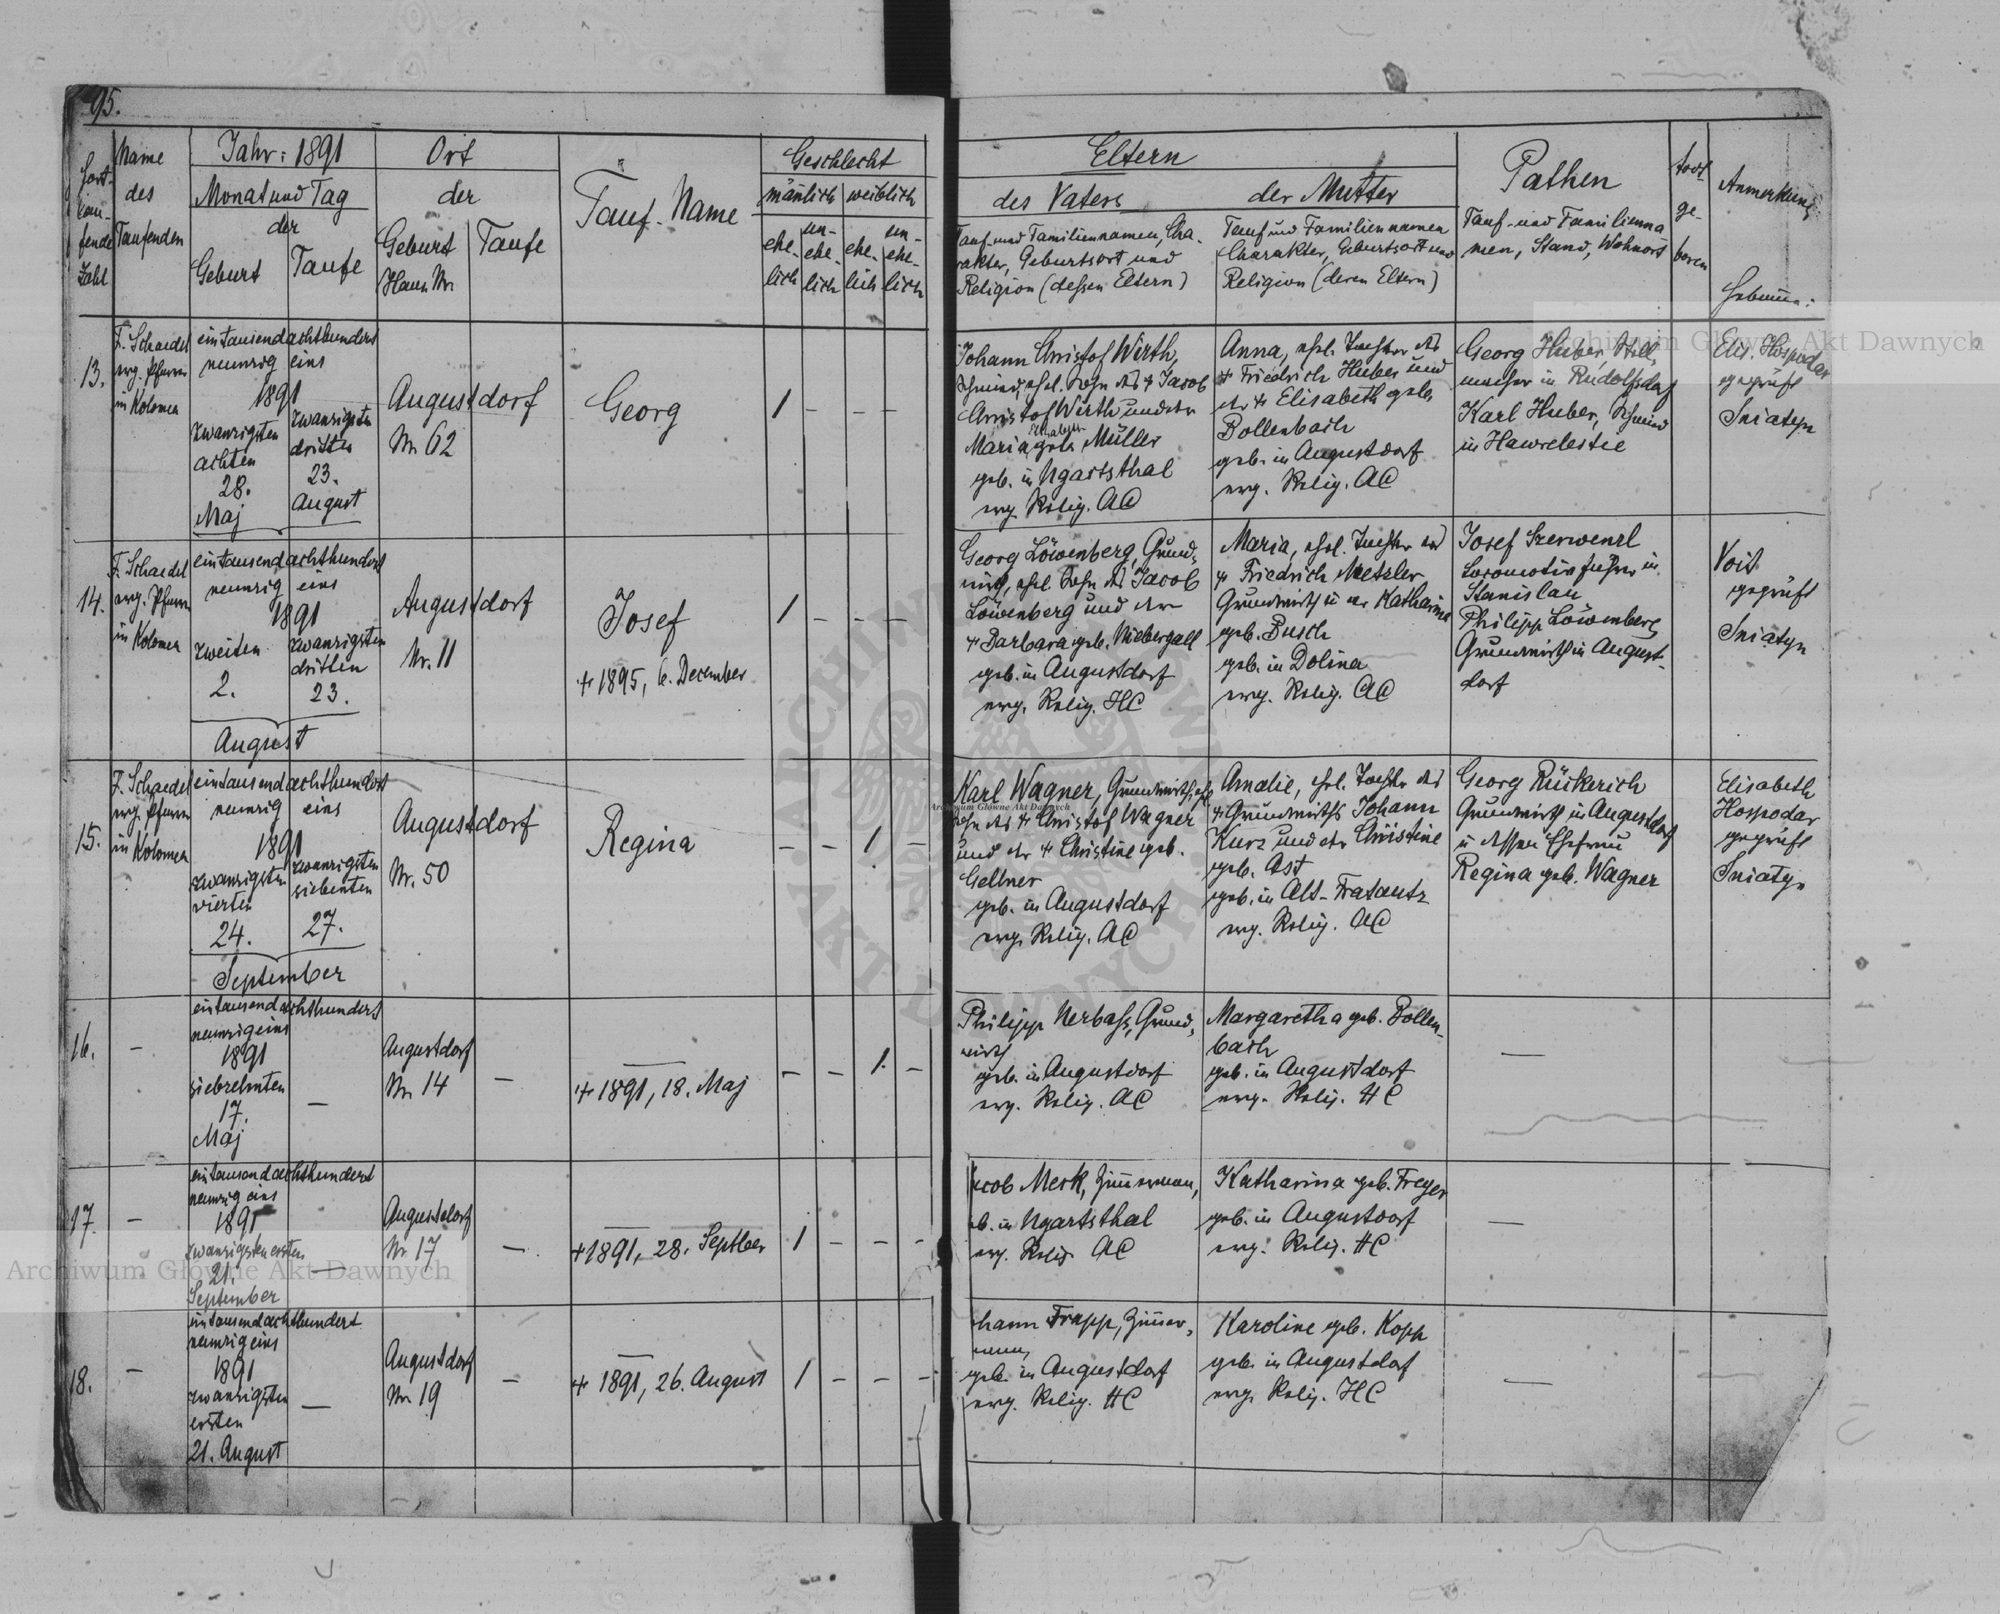 95.
Fort-
lau-
fende
Zahl
Name
des
Taufenden
Jahr: 1891
Monat und Tag
der
Geburt
Taufe
Ort
der
Geburt
Haus Nr.
Taufe
Tauf-Name
Geschlecht
mänlich
weiblich
ehe-
lich
un-
ehe-
lich
ehe-
lich
un-
ehe-
lich
Eltern
des Vaters
Tauf- und Familiennamen, Cha-
rakter, Geburtsort und
Religion (dessen Eltern)
der Mutter
Tauf und Familiennamen
Charakter, Geburtsort und
Religion (deren Eltern)
Pathen
Tauf- und Familienna
men, Stand, Wohnort
todt
ge-
boren
Anmerkung
Hebamme:
13.
F. Schaedel
evg. Pfarrer
in Kolomea
eintausendachthundert
neunzig eins
1891
zwanzigsten
achten
28.
Maj
zwanzigsten
dritten
23.
August
Augustdorf
Nr. 62
Georg
1 - - -
Johann Christof Wirth,
Schmied, ehel. Sohn des + Jacob
Christof Wirth und der
Maria Elisabeth geb. Müller
geb. in Ugartsthal
evg. Relig. AC
Anna, ehel. Tochter des
+ Friedrich Huber und
der + Elisabeth geb.
Bollenbach
geb. in Augustdorf
evg. Relig. AC
Georg Huber, Stell
macher in Rudolfsdorf
Karl Huber, Schmied
in Hawrelestie
Elis. Hospodar
geprüft
Sniatyn
14.
F. Schaedel
evg. Pfarrer
in Kolomea
eintausendachthundert
neunzig eins
1891
zweiten
2.
zwanzigsten
dritten
23.
August
Augustdorf
Nr. 11
Josef
+ 1895, 6. December
1 - - -
Georg Löwenberg, Grund-
wirth, ehel. Sohn des Jacob
Löwenberg und der
+ Barbara geb. Niebergall
geb. in Augustdorf
evg. Relig. HC
Maria, ehel. Tochter des
+ Friedrich Metzler
Grundwirth u der Katharina
geb. Busch
geb. in Dolina
evg. Relig. AC
Josef Szerwenzl
Locomotivführer in
Stanislau
Philipp Löwenberg
Grundwirth in August-
dorf
Voit
geprüft
Sniatyn
15.
F. Schaedel
evg. Pfarrer
in Kolomea
eintausendachthundert
neunzig eins
1891
zwanzigsten
vierten
24.
zwanzigsten
siebenten
27.
September
Augustdorf
Nr. 50
Regina
- - 1 -
Karl Wagner, Grundwirth, ehel
Sohn des + Christof Wagner
und der + Christine geb.
Gellner
geb. in Augustdorf
evg. Relig. AC
Amalie, ehel. Tochter des
+ Grundwirths Johann
Kurz und der Christine
geb. Ast
geb. in Alt-Fratautz
evg. Relig. AC
Georg Rückerich
Grundwirth in Augustdorf
u dessen Ehefrau
Regina geb. Wagner
Elisabeth
Hospodar
geprüft
Sniatyn
16.
-
eintausendachthundert
neunzigeins
1891
siebzehnten
17.
Maj
-
Augustdorf
Nr. 14
-
+ 1891, 18. Maj
- - 1. -
Philipp Nerbass, Grund-
wirth
geb. in Augustdorf
evg. Relig. AC
Margaretha geb. Bollen-
bach
geb. in Augustdorf
evg. Relig. HC
-
17.
-
eintausendachthundert
neunzig eins
1891
zwanzigsten ersten
21.
September
-
Augustdorf
Nr. 17
-
+ 1891, 28. Septber
1 - - -
acob Merk, Zimmermann,
eb. in Ugartsthal
evg. Relig. AC
Katharina geb. Freyer
geb. in Augustdorf
evg. Relig. HC
-
18.
-
eintausendachthundert
neunzigeins
1891
zwanzigsten
ersten
21. August
-
Augustdorf
Nr. 19
-
+ 1891, 26. August
1 - - -
ohann Trapp, Zimmer-
mann
geb. in Augustdorf
evg. Relig. HC
Karoline geb. Kopp
geb. in Augustdorf
evg. Relig. HC
-
Archiwum Główne Akt Dawnych
Archiwum Główne Akt Dawnych
Archiwum Główne Akt Dawnych